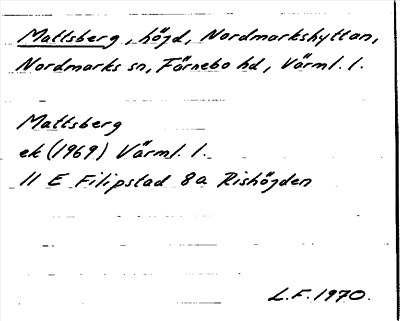 Mattsberg, höjd, Nordmarkshyttan,
Nordmarks sn, Färnebo hd, Värml. l.
Mattsberg
ek (1969) Värml. l.
11 E Filipstad 8a Rishöjden
L.F. 1970.